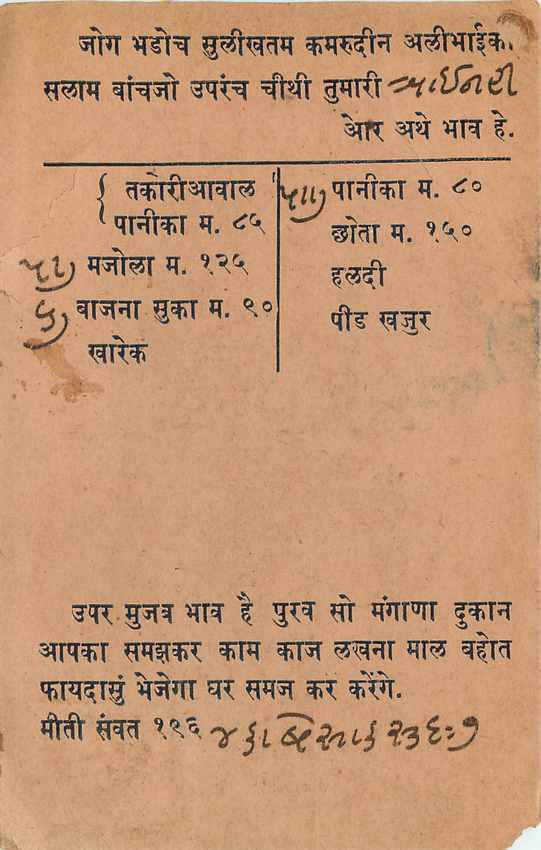 जोग भडोच सुलीखतम कमरुदीन अलीभाईका
सलाम बांचजो उपरंच चीथी तुमारी
आेर अथे भाव हे.
तकोरीआवाल
पानीका म. ८५
मजोला म. १२५
वाजना सुका म. ९०
खारेक
पानीका म. ८०
छोता म. १५०
हलदी
पींड खजुर
उपर मुजव भाव है पुरव सो मंगाणा दुकान
आपका समझकर काम काज लखना माल बहोत
फायदासुं भेजेगा घर समज कर करेंगे.
मीती संवत १९६